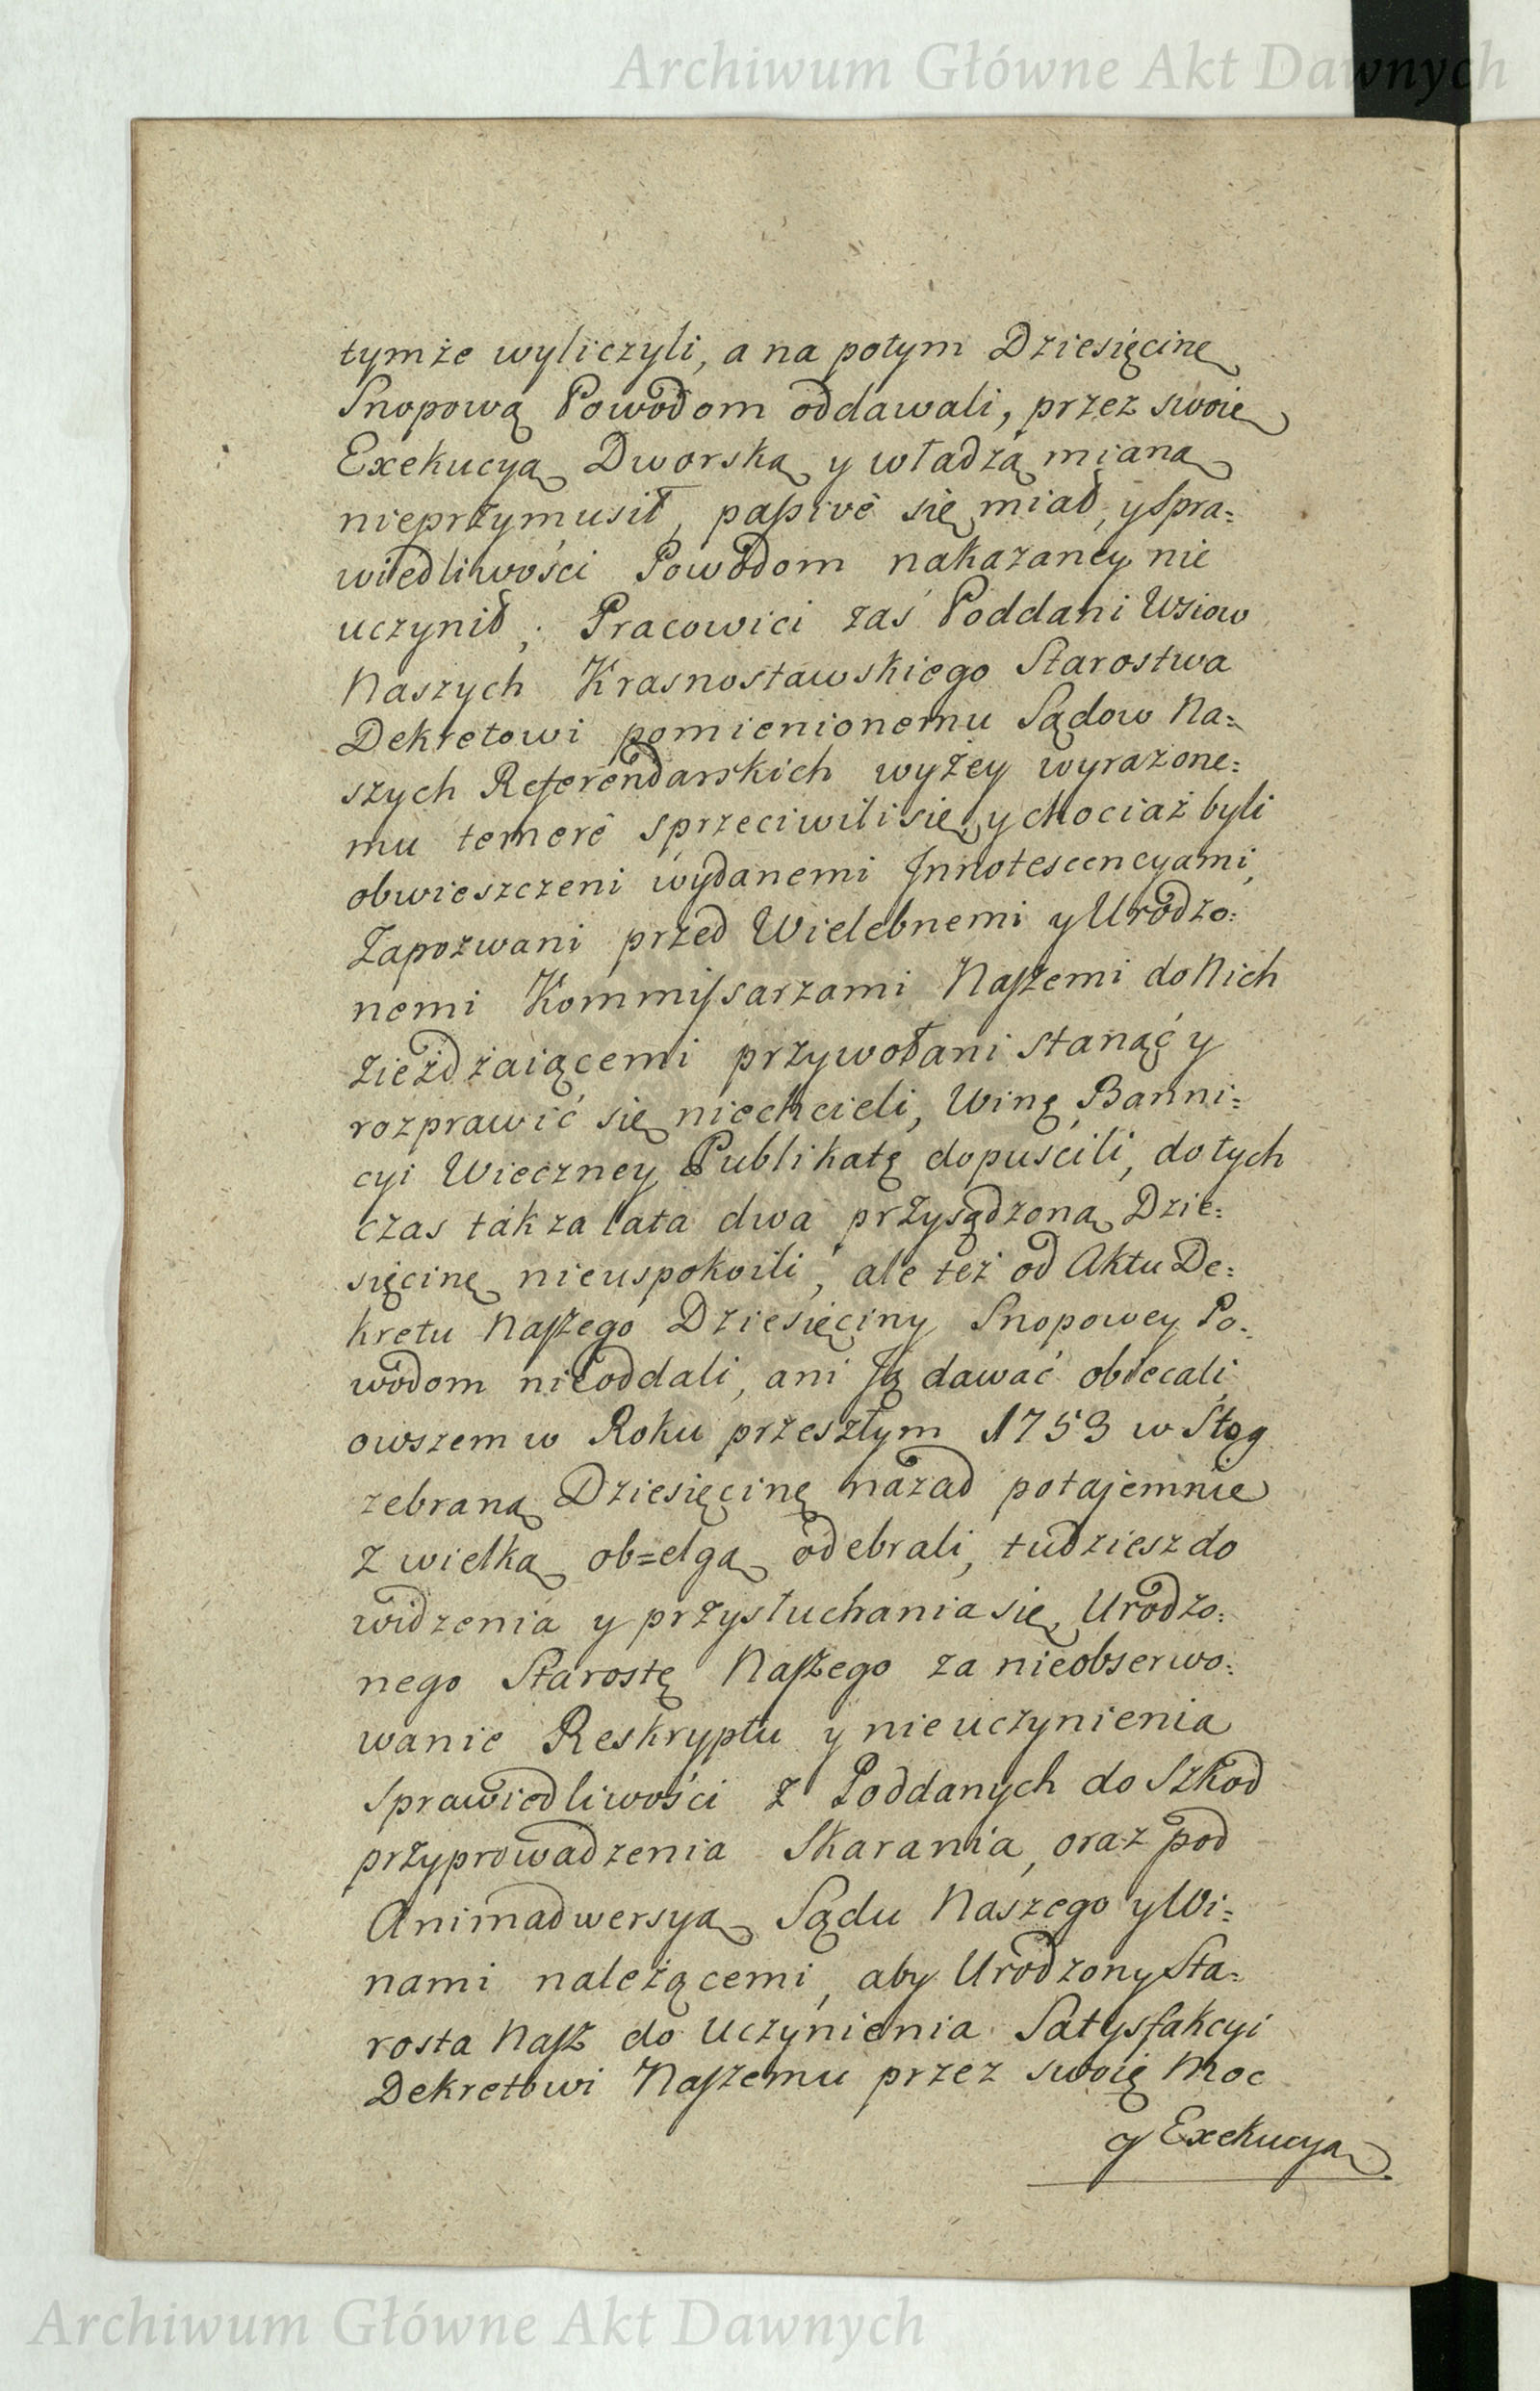 Archiwum Główne Akt Dawnych
tymże wyliczyli, a na potym Dziesięcinę
Snopową Powodom oddawali, przez swoię
Exekucyą Dworską y władzą mianą
nieprzymusił, passivè się miał, y Spra=
wiedliwości Powodom nakazaney nie
uczynił, Pracowici zaś Poddani Wsiow
Naszych Krasnostawskiego Starostwa
Dekretowi pomienionemu Sądow Na=
szych Referendarskich wyżey wyrażone=
mu temerè sprzeciwili się, y chociaż byli
obwieszczeni wydanemi Innotescencyami,
Zapozwani przed Wielebnemi y Urodzo=
nemi Kommissarzami Naszemi do Nich
zieżdżaiącemi przywołani stanąć y
rozprawić się niechcieli, Winę Banni=
cyi Wieczney Publikatę dopuścili, do tych
czas tak za lata dwa przysądzoną Dzie=
sięcinę nieuspokoili, ale też od Aktu De=
kretu Naszego Dziesięciny Snopowey Po=
wodom nieoddali, ani Ją dawać obiecali,
owszem w Roku przeszłym 1753 w Stog
zebraną Dziesięcinę nazad potajemnie
z wielką ob=elgą odebrali, tudziesz do
widzenia y przysłuchania się, Urodzo=
nego Starostę Naszego za nieobserwo=
wanie Reskryptu y nieuczynienia
sprawiedliwości z Poddanych do Szkod
przyprowadzenia Skarania, oraz pod
Animadwersyą Sądu Naszego y Wi=
nami należącemi, aby Urodzony Sta=
rosta Nasz do Uczynienia Satysfakcyi
Dekretowi Naszemu przez swoię Moc
y Exekucyą
Archiwum Główne Akt Dawnych